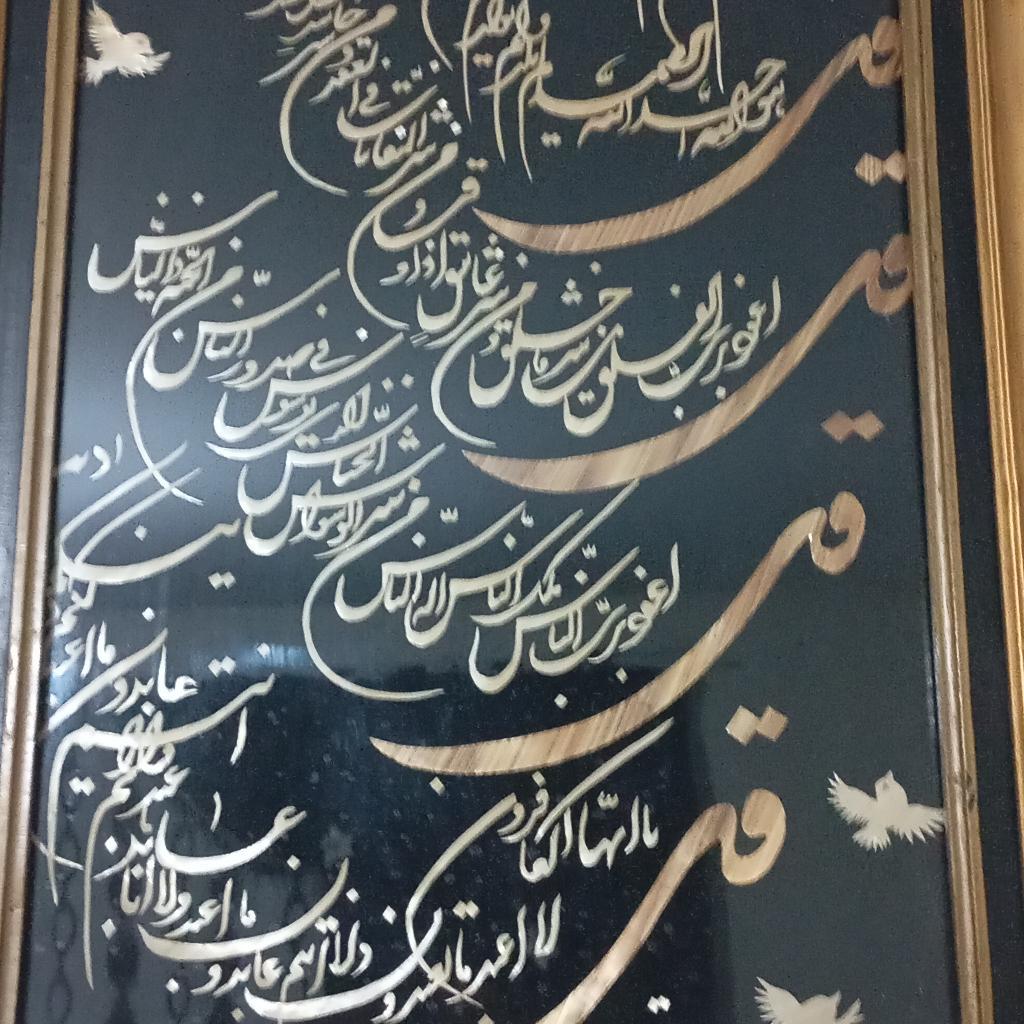 قل
هو الله احد الله الصمد لم یلد و لم یولد
قل
اعوذ برب الفلق من شر ما خلق و
من شر غاسق اذا و
قب و
من شر النفاثات فی
العقد و
من
قل
اعوذ برب الناس ملک الناس اله الناس
من شر الوسواس
الخناس الذی
یوسوس فی صدور الناس من
الجنة و الناس
قل
یا ایها الکافرون
لا اعبد ما تعبدون
و لا انتم عابدون
ما اعبد و لا انا
عابد
ما عبدتم
و لا انتم
عابدون ما اعبد
لکم دینکم